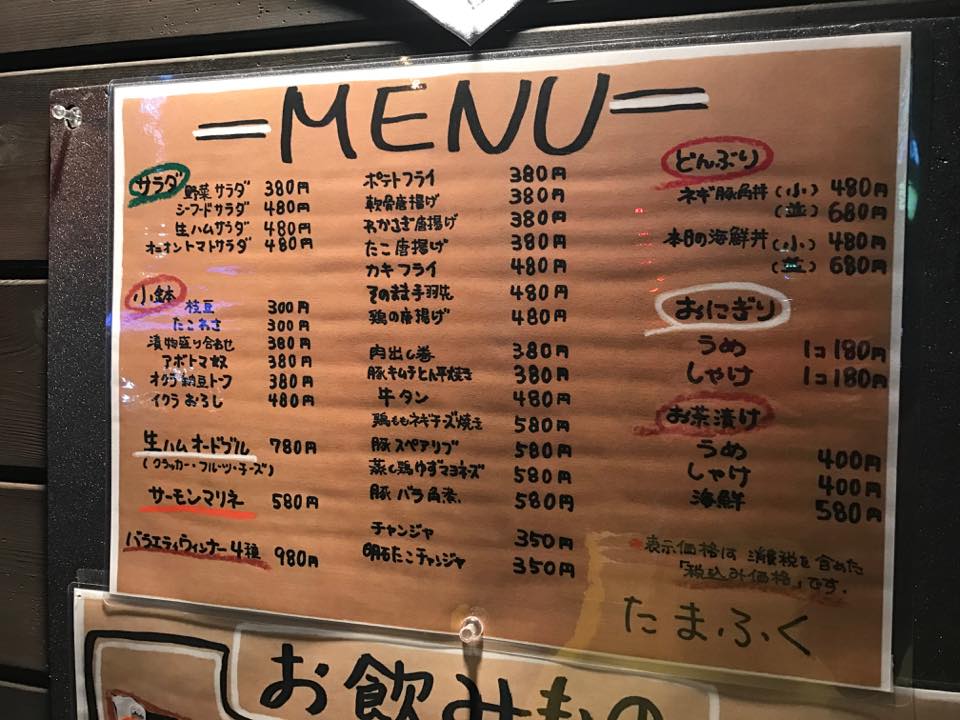 =MENU=
サラダ
野菜サラダ 380円
シーフードサラダ 480円
生ハムサラダ 480円
オニオントマトサラダ 480円
小鉢
枝豆 300円
たこわさ 300円
漬物盛り合わせ 380円
アボトマ奴 380円
オクラ納豆トーフ 380円
イクラおろし 480円
生ハムオードブル 780円
(クラッカー・フルーツ・チーズ)
サーモンマリネ 580円
バラエティウィンナー4種 980円
ポテトフライ 380円
軟骨唐揚げ 380円
わかさぎ唐揚げ 380円
たこ唐揚げ 380円
カキフライ 480円
そのまま手羽先 480円
鶏の唐揚げ 480円
肉出し巻 380円
豚キムチとん平焼き 380円
牛タン 480円
鶏ももネギチーズ焼き 580円
豚スペアリブ 580円
蒸し鶏ゆずマヨネーズ 580円
豚バラ角煮 580円
チャンジャ 350円
明石たこチャンジャ 350円
どんぶり
ネギ豚角丼 (小) 480円
(並) 680円
本日の海鮮丼 (小) 480円
(並) 680円
おにぎり
うめ 1コ 180円
しゃけ 1コ 180円
お茶漬け
うめ 400円
しゃけ 400円
海鮮 580円
※表示価格は消費税を含めた
「税込み価格」です.
たまふく
お飲みもの